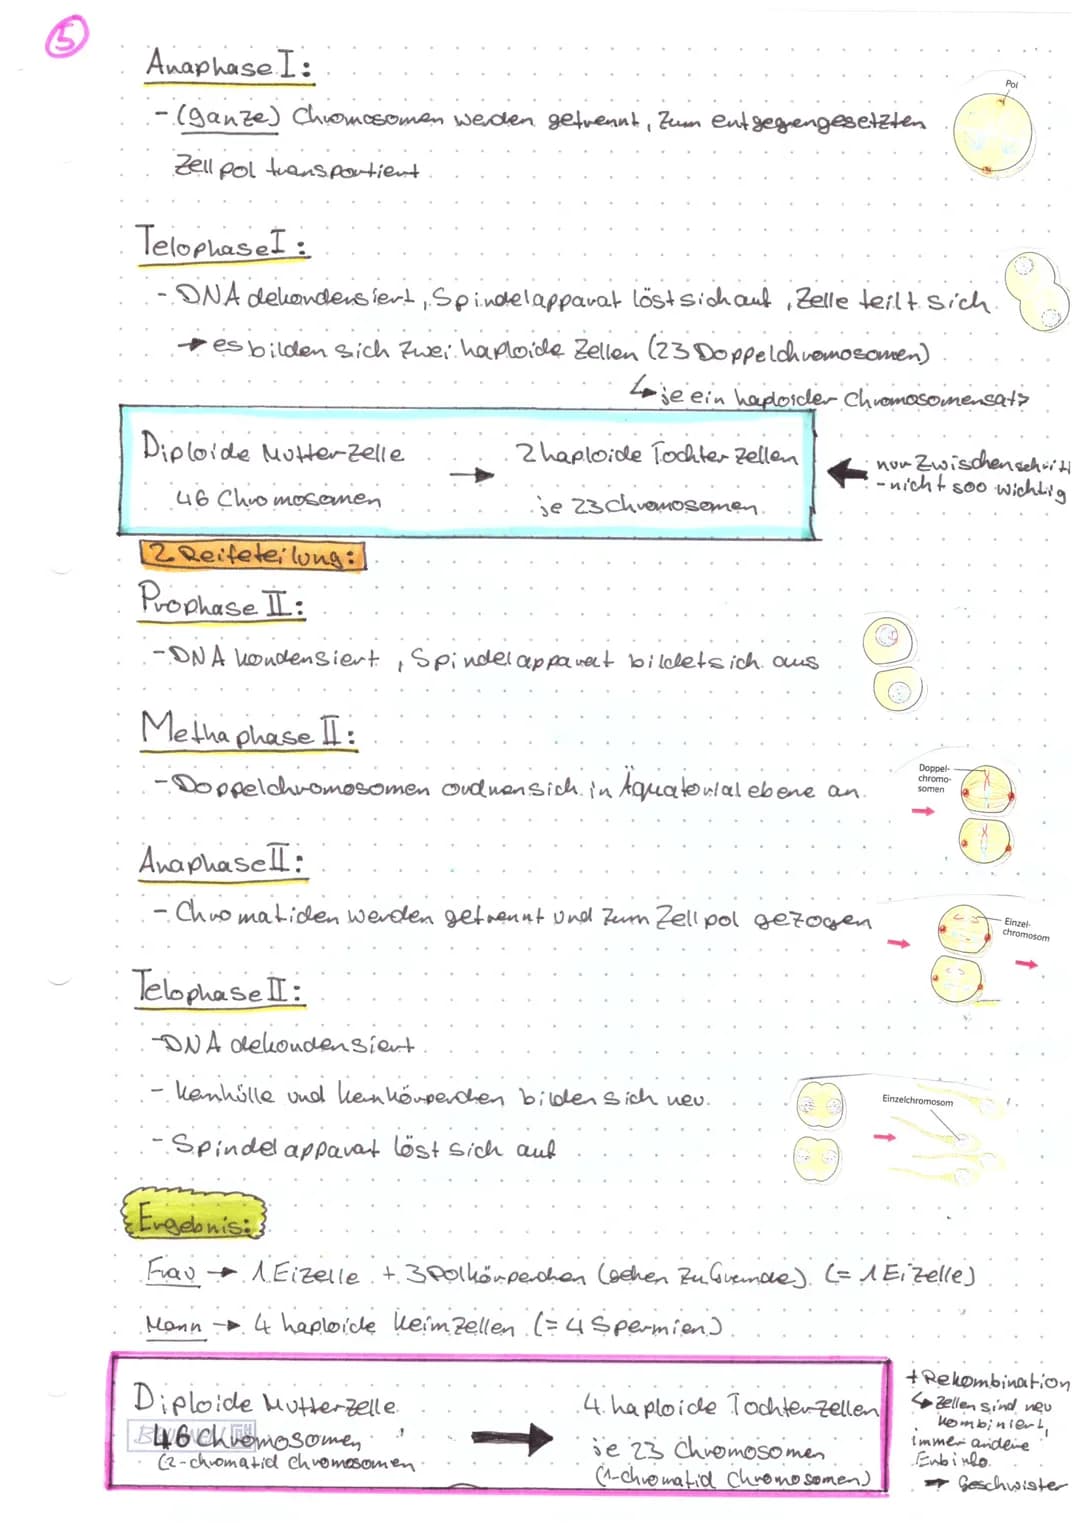 5
Anaphase I:
Pol
- (ganze) Chromosomen werden getrennt, zum entgegengesetzten
Zellpol transportiert
Telophase I:
- DNA dekondensiert, Spindelapparat löst sich auf, Zelle teilt sich
→ es bilden sich zwei haploide Zellen (23 Doppelchromosomen)
↳ je ein haploider Chromosomensatz
Diploide Mutterzelle → 2 haploide Tochterzellen
46 Chromosomen je 23 Chromosomen
← nur Zwischenschritt
- nicht soo wichtig
2. Reifeteilung:
Prophase II:
- DNA kondensiert, Spindelapparat bildet sich aus
Methaphase II:
- Doppelchromosomen ordnen sich in Äquatorialebene an.
Doppel-
chromo-
somen
Anaphase II:
- Chromatiden werden getrennt und zum Zellpol gezogen
Einzel-
chromosom
Telophase II:
- DNA dekondensiert
- Kernhülle und Kernkörperchen bilden sich neu.
Einzelchromosom
- Spindelapparat löst sich auf
Ergebnis:
Frau → 1 Eizelle + 3 Polkörperchen (gehen zu Grunde) (= 1 Eizelle)
Mann → 4 haploide Keimzellen (= 4 Spermien)
Diploide Mutterzelle → 4 haploide Tochterzellen
46 Chromosomen je 23 Chromosomen
(2-chromatid Chromosomen (1-chromatid Chromosomen)
+ Rekombination
↳ Zellen sind neu
kombiniert,
immer andere
Erbinfo.
→ Geschwister